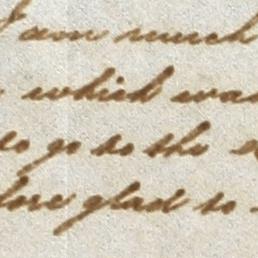 I am much
which was
to go to the
fore glad to